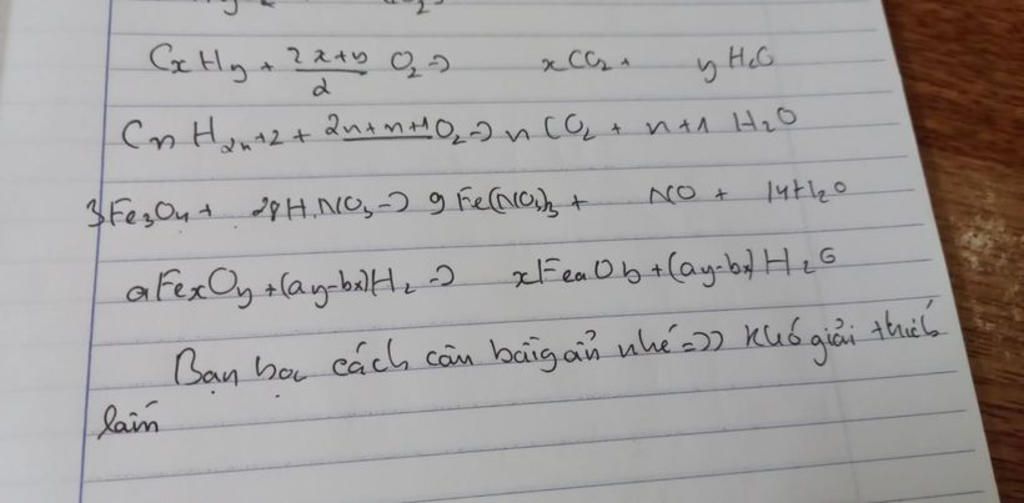 CxHy + (2x+y)/2 O₂ → xCO₂ + y H₂O
CnH₂n+2 + 2n+n+1O₂ → nCO₂ + n+1 H₂O
3Fe₃O₄ + 28H.NO₃ → 9Fe(NO₃)₃ + NO + 14H₂O
aFexOy + (ay-bx)H₂ → xFeaOb + (ay-bx)H₂O
Bạn học cách cân bằng ẩn nhé =)) Khó giải thích
lắm